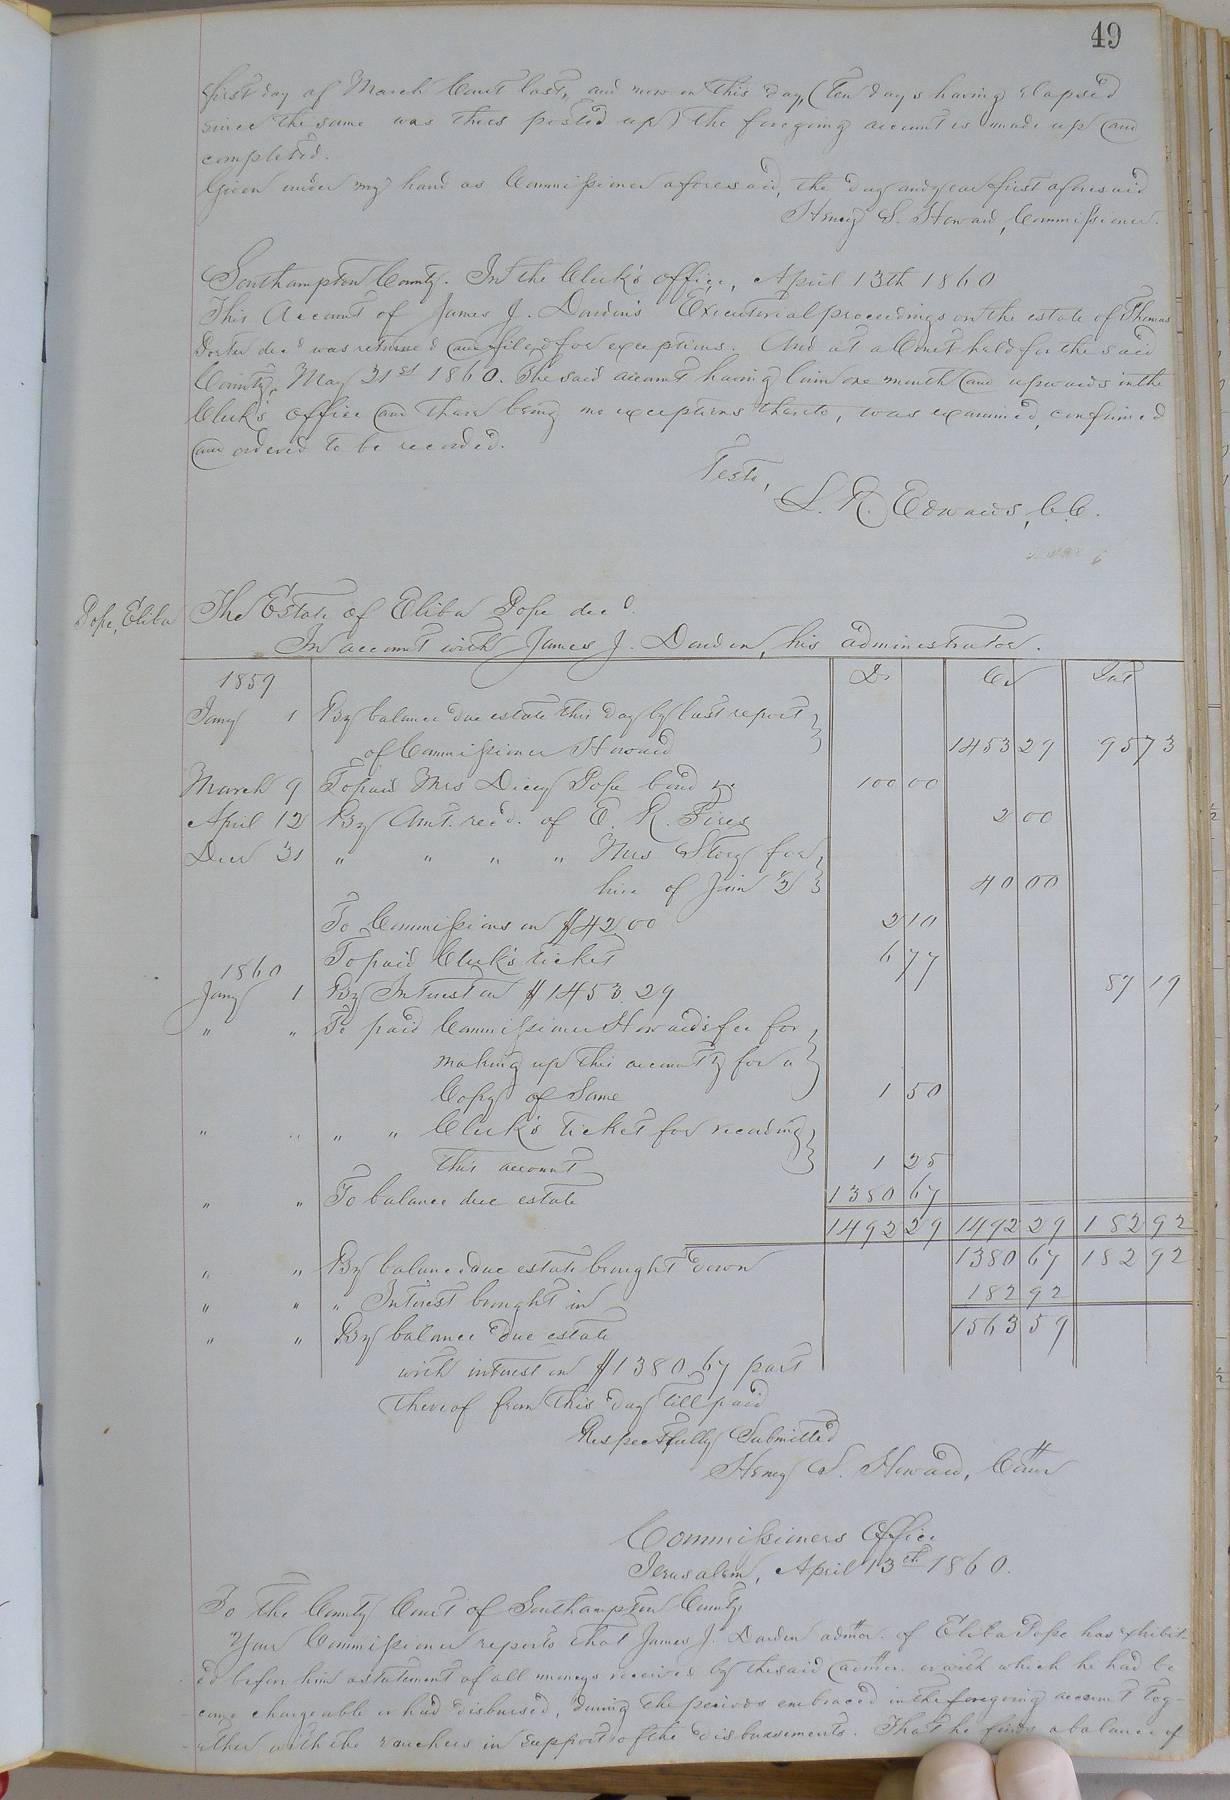 49
first day of March Court last, and now on this day, (Ten days having elapsed
since the same was thus posted up) the foregoing account is made up and
completed.
Given under my hand as Commissioner aforesaid, the day and year first aforesaid
Henry S. Howard, Commissioner.
Southampton County. In the Clerk's office, April 13th 1860
This Account of James J. Darden's Executorial proceedings on the estate of Thomas
decd was returned and filed for exceptions. And at a Court held for the said
County, May 21st 1860. The said account having lain one month and upwards in the
Clerk's office and there being no exceptions thereto, was examined, confirmed
and ordered to be recorded.
Teste,
L. R. Edwards, C.C.
Pope, Eliba
The Estate of Eliba Pope decd.
In account with James J. Darden, his administrator.
1859 Dr Cr Int
Jany 1 By balance due estate this day by last report
of Commissioner Howard 1453 29 95 73
March 9 To paid Mrs Dicey Pope bond 100 00
April 12 By Amt. recd. of E. R. 2 00
Decr 31 " " " " Mrs Story for
hire of Jim 40 00
To Commissions on $42.00 2 10
To paid Clerk's ticket 6 77
1860
Jany 1 By Interest on $1453.29 87 19
" " To paid Commissioner Howard's fee for
making up this account & for a
Copy of Same 1 50
" " " " Clerk's Ticket for recording
this account 1 25
" " To balance due estate 1380 67
1492 29 1492 29 182 92
" " By balance due estate brought down 1380 67 182 92
" " " Interest brought in 182 92
" " By balance due estate 1563 59
with interest on $1380.67 part
thereof from this day till paid
Respectfully Submitted
Henry S. Howard, Comr
Commissioners Office
Jerusalem, April 13th 1860.
To the County Court of Southampton County
Your Commissioner reports that James J. Darden admor. of Eliba Pope has exhibit-
ed before him a statement of all moneys received by the said admor. or with which he had be
come chargeable or had disbursed, during the periods embraced in the foregoing account tog-
ether with the vouchers in support of the disbursements. That he finds a balance of